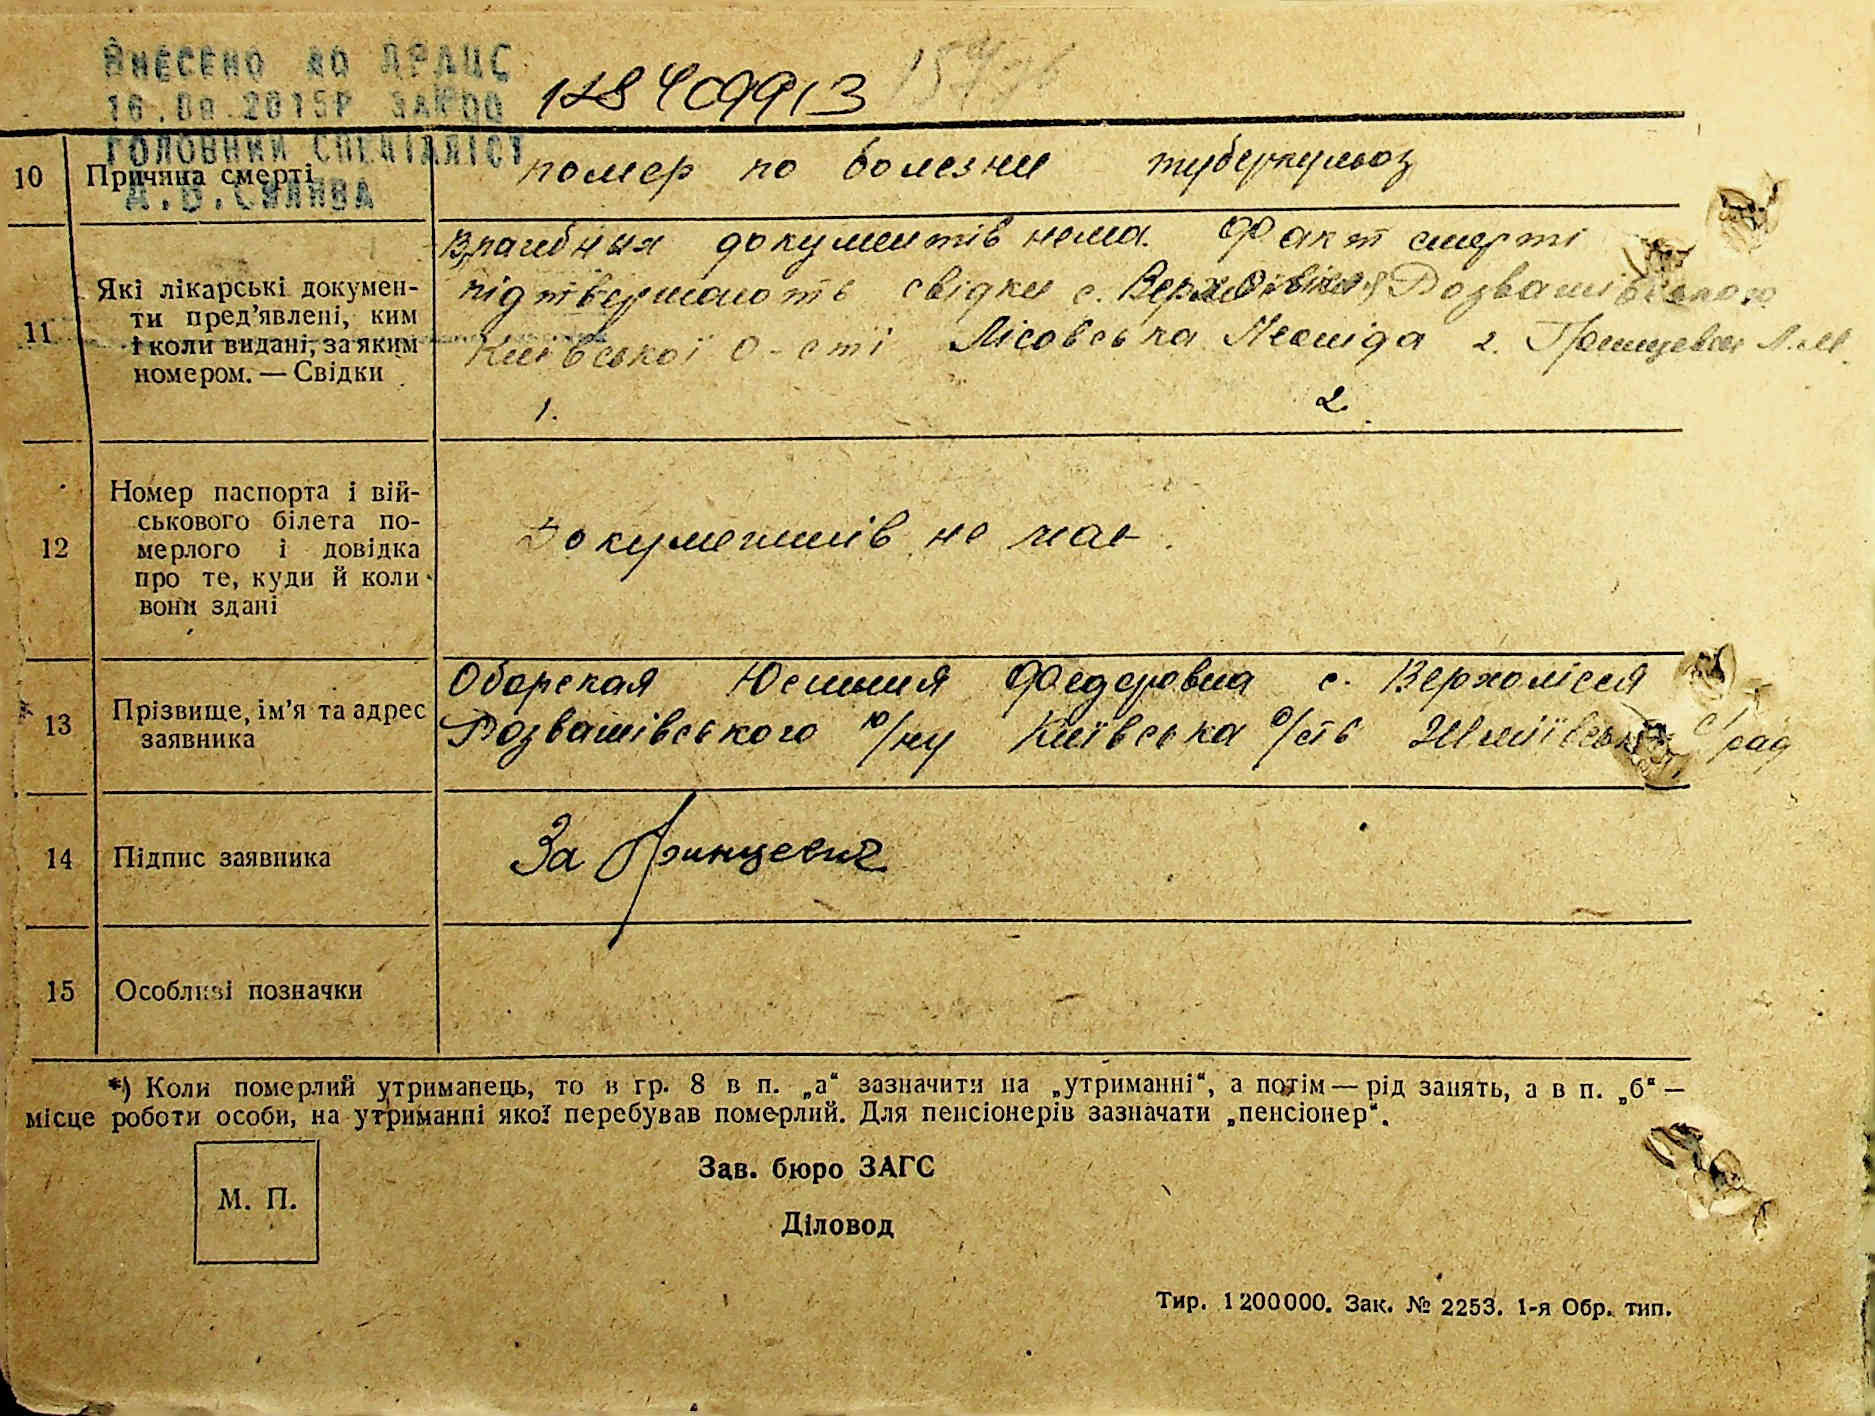 Внесено до ДРАЦС
128409913
16.09.2015р
головний спеціаліст
10 Причина смерті
помер по болезни туберкульоз
11 Які лікарські докумен-
ти пред'явлені, ким
і коли видані, за яким
номером. — Свідки
документів нема. Факт смерті
свідки с.
Київської о-сті Лісовська 2.
1. 2.
12 Номер паспорта і вій-
ськового білета по-
мерлого і довідка
про те, куди й коли
вони здані
Документів не має.
13 Прізвище, ім'я та адрес
заявника
Оборская Федоровна с. Верхолісся
Розважівського р/ну Київська о/сть с/рад
14 Підпис заявника
За
15 Особливі позначки
*) Коли померлий утриманець, то в гр. 8 в п. „а“ зазначити на „утриманні“, а потім — рід занять, а в п. „б“ —
місце роботи особи, на утриманні якої перебував померлий. Для пенсіонерів зазначати „пенсіонер“.
М. П.
Зав. бюро ЗАГС
Діловод
Тир. 1200000. Зак. № 2253. 1-я Обр. тип.